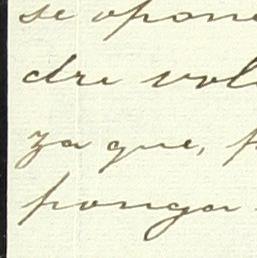 se opone
dre vol
za que, p
ponga